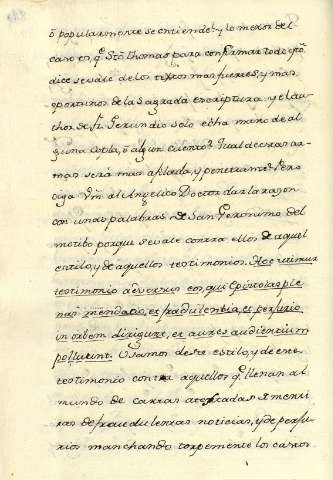 ò popularmente se entiende? y lo mexor del
caso es, q̃ Sto Thomas para confirmar todo q̃to
dice se vale de los textos mas fuertes, y mas
oportunos de la Sagrada escriptura. y el Au-
thor de fr. Gerundio solo echa mano de al
guna copla, ò algun cuento? Qual de estas ar-
mas será mas afilada, y penetrante? Pero
oiga Vm al Angelico Doctor dar la razon
con unas palabras de San Geronimo del
motibo porque se vale contra ellos de aquel
estilo, y de aquellos testimonios. Hoc utimur
testimonio adversus eos, qui Epistolas ple
nas mendatio, et fraudulentia, et perjurio
in orbem dirigunt, et aures audientium
polluunt. Usamos deste estilo, y de este
testimonio contra aquellos q̃ llenan al
mundo de cartas atestadas de menti
ras de fraudulentas noticias, y de perju-
rios manchando torpemente los castos